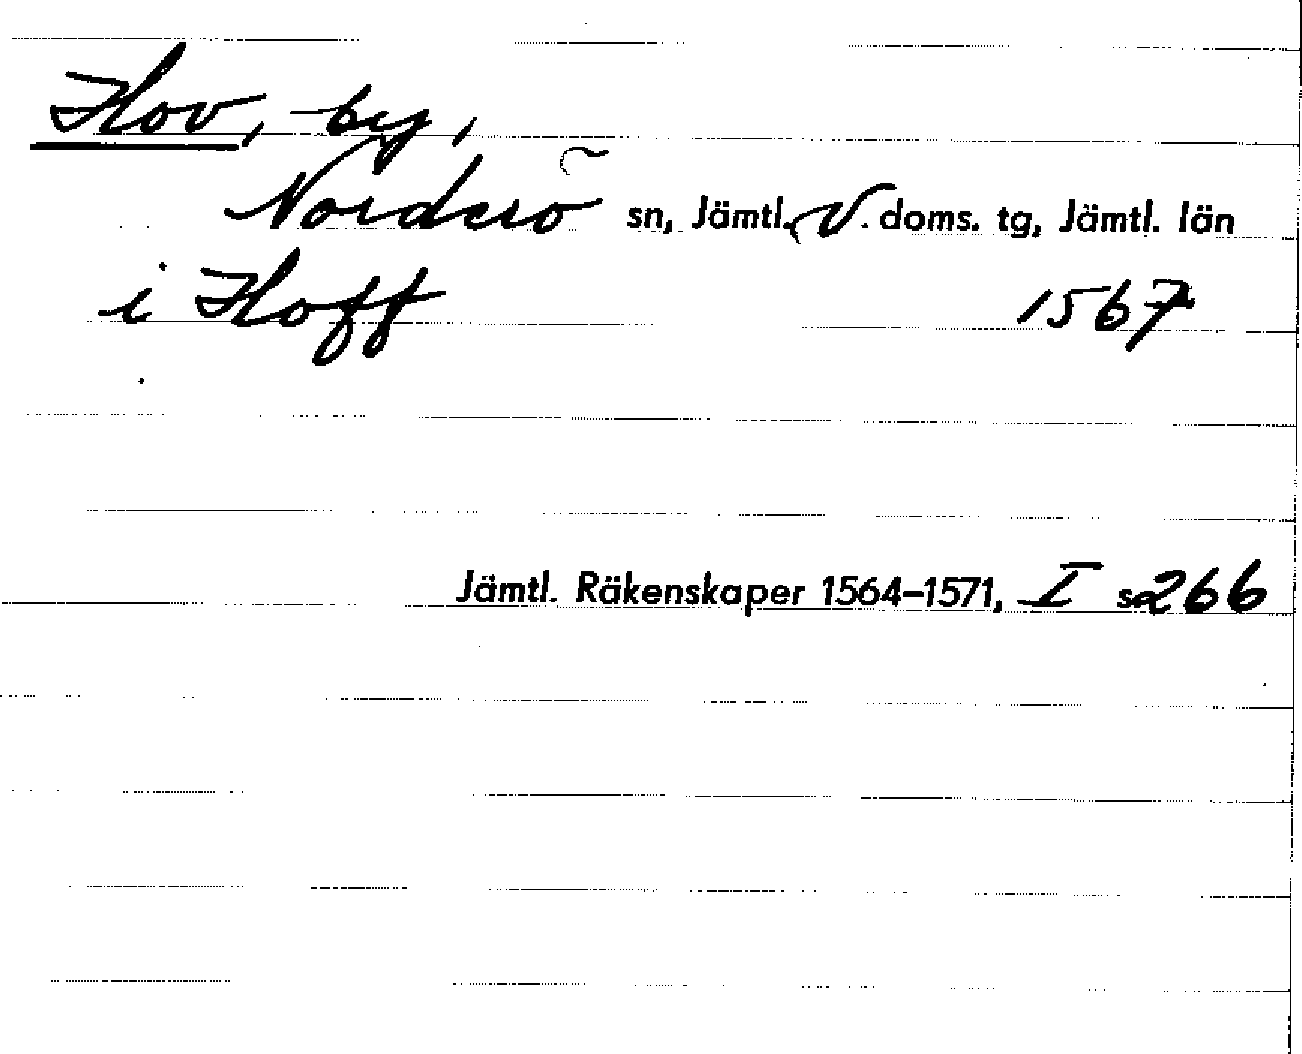 Hov, by,
Norderö sn, Jämtl. V. doms. tg, Jämtl. län
i Hoff 1567
Jämtl. Räkenskaper 1564–1571, I s 266